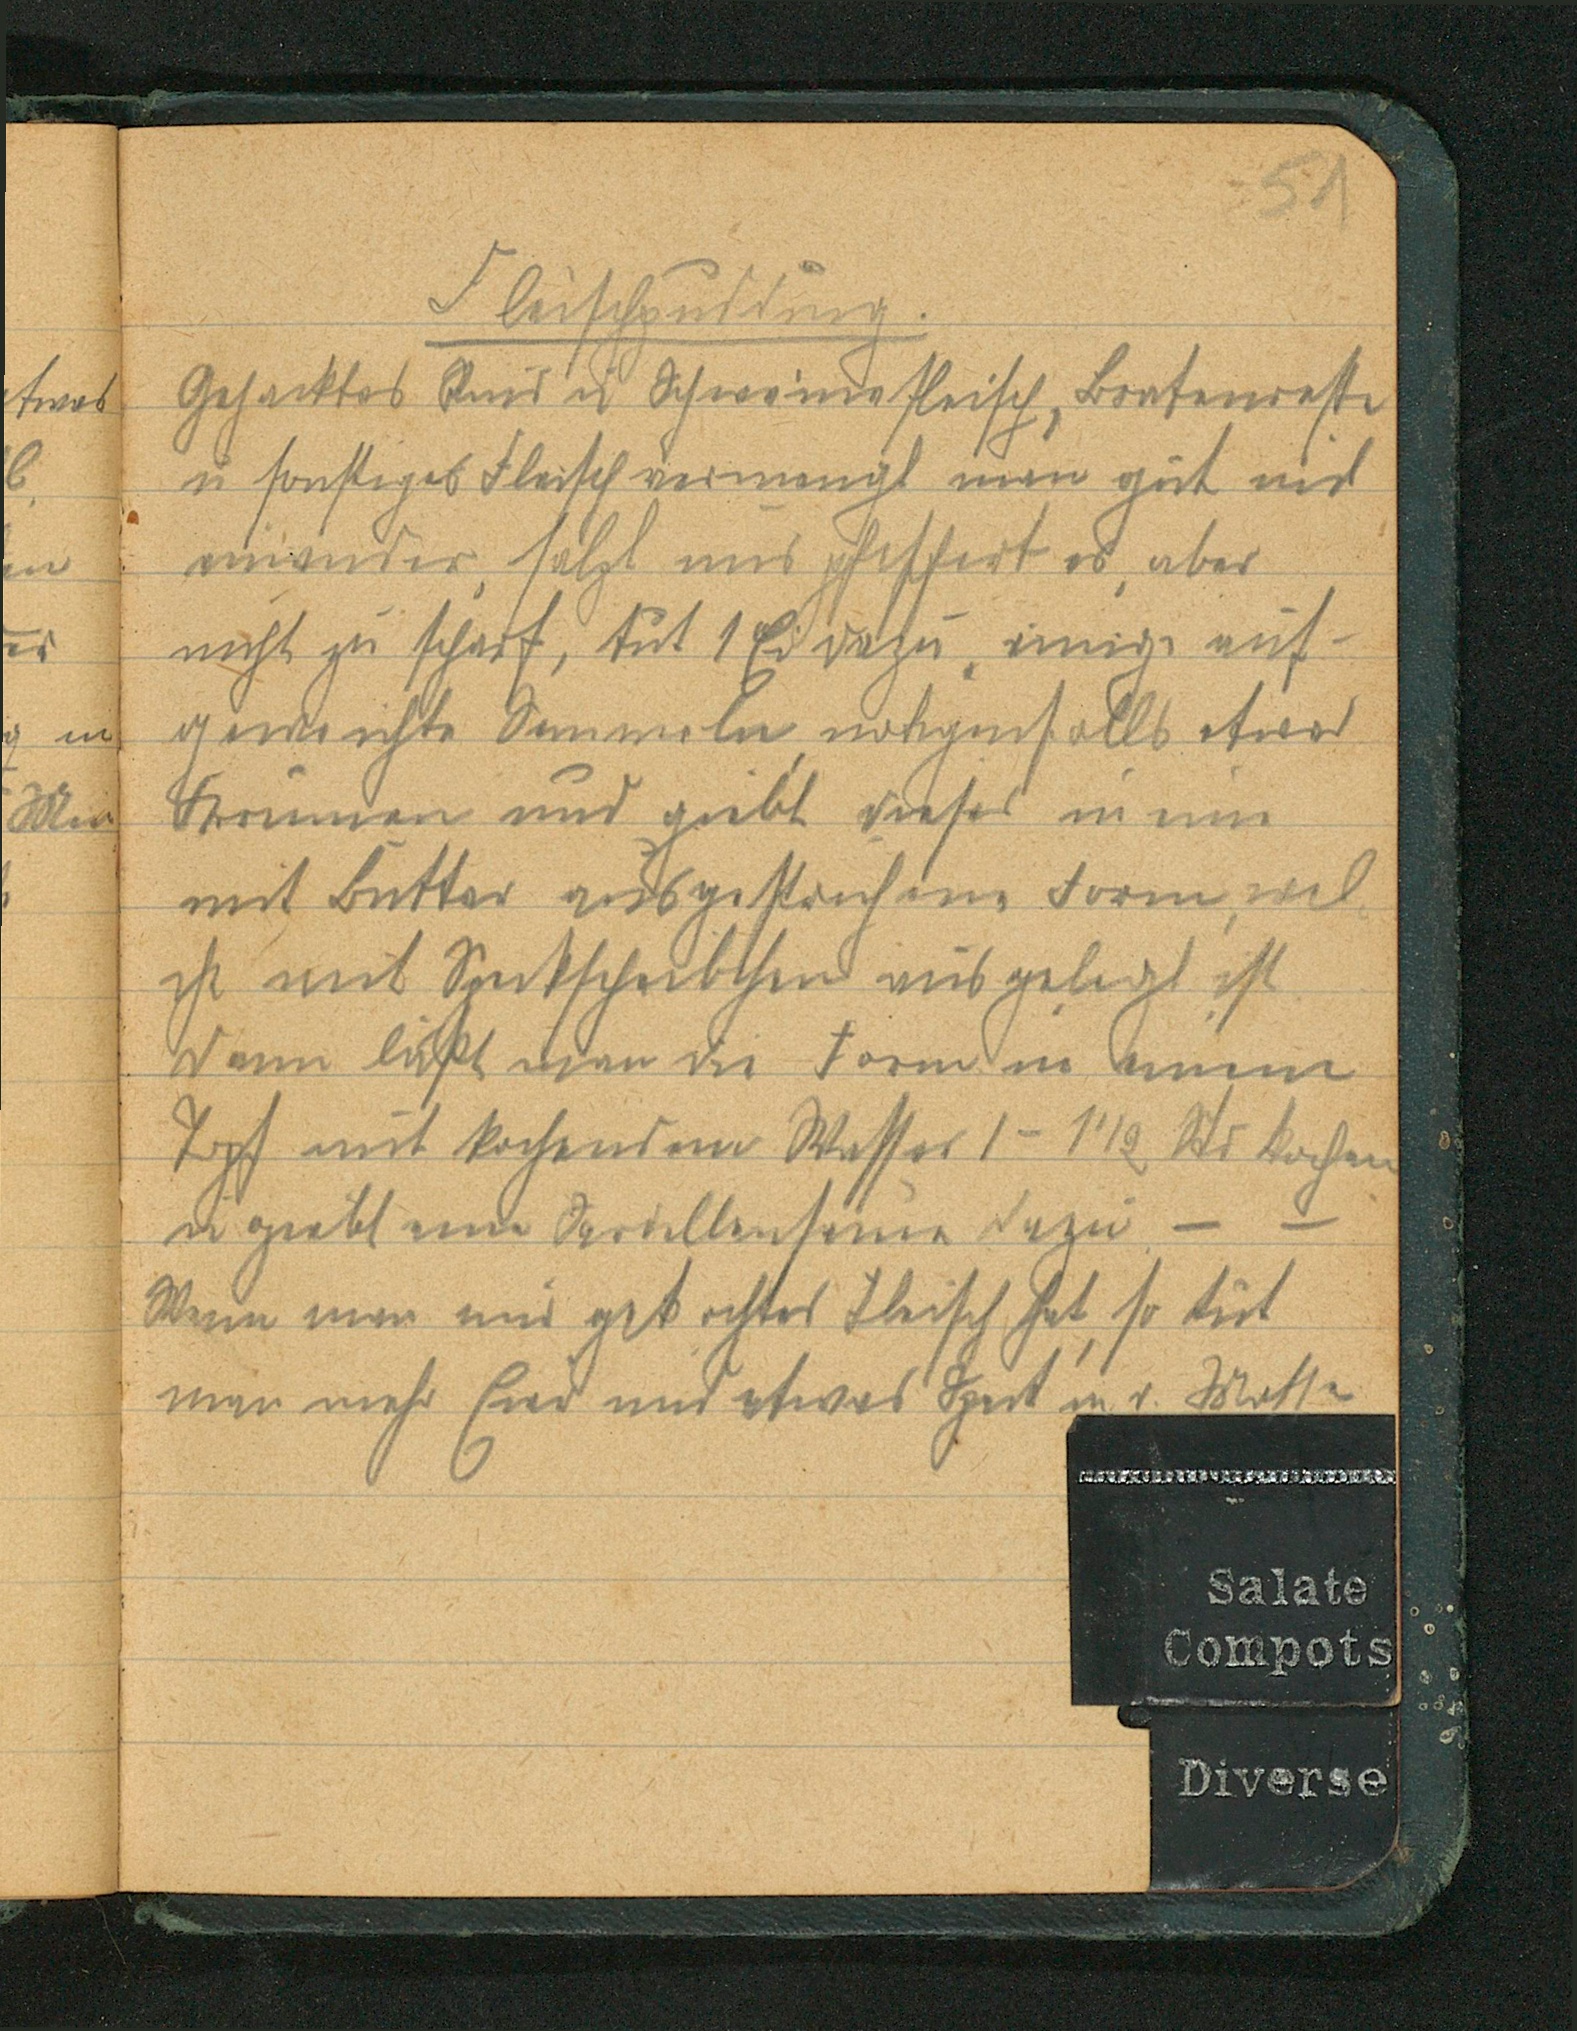 51
Fleischpudding.
Gehacktes Rind u Schweinefleisch, Bratenreste
u sonstiges Fleisch vermengt man gut mit
einander, salzt und pfeffert es, aber
nicht zu scharf, tut 1 Ei dazu, einige auf-
geweichte Semmeln, nötigenfalls etwas
Krumen und giebt dieses in eine
mit Butter ausgestrichene Form, wel-
che mit Speckscheibchen ausgelegt ist
Dann läßt man die Form in einem
Topf mit kochendem Wasser 1 - 1 1/2 Std kochen
u giebt eine Sardellensauce dazu. — —
Wenn man nur gekochtes Fleisch hat, so tut
man mehr Eier und etwas Speck in d. Masse
Salate
Compots
Diverse
etwas
en
in